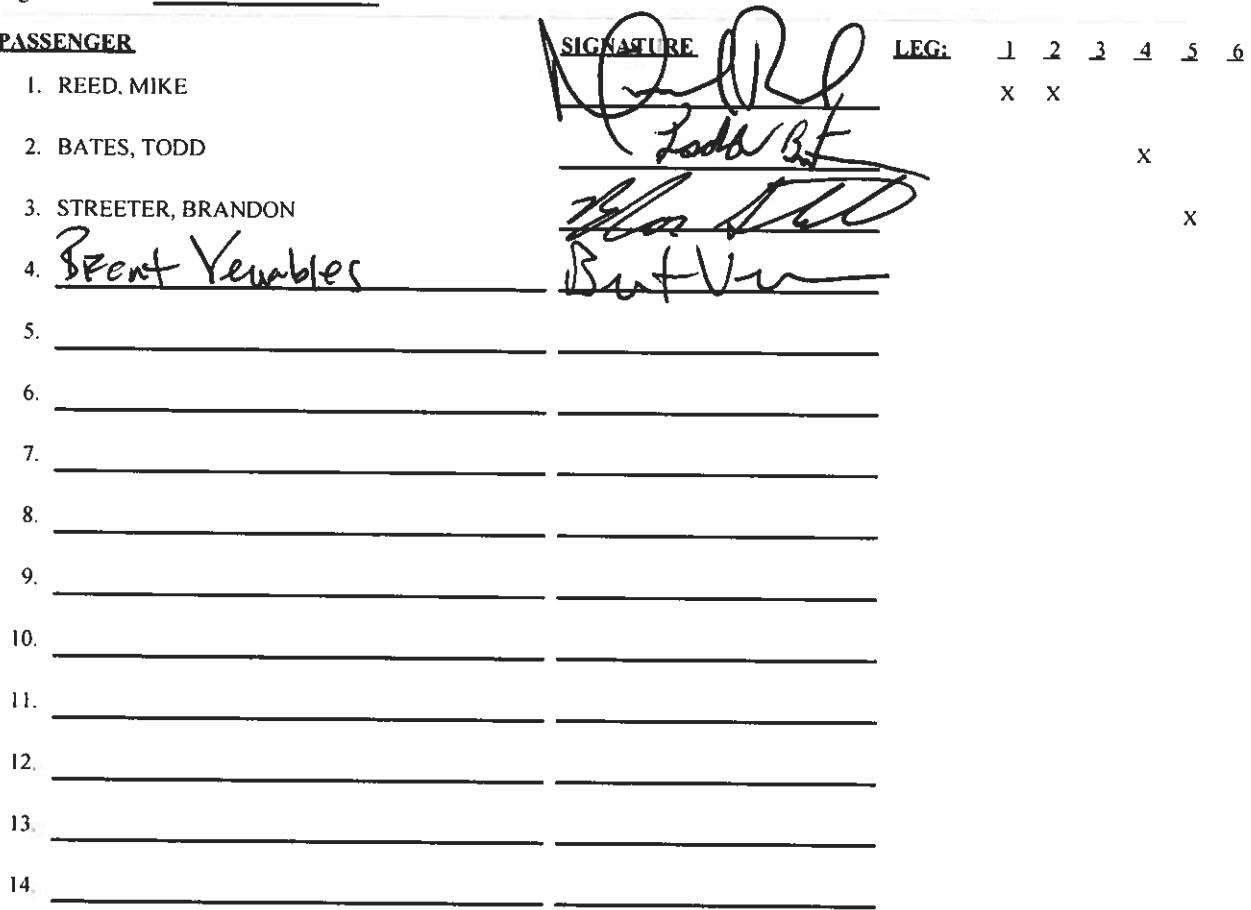 PASSENGER SIGNATURE LEG: 1 2 3 4 5 6
1. REED, MIKE X X
2. BATES, TODD Todd Bat X
3. STREETER, BRANDON X
4. Brent Venables Brent V
5.
6.
7.
8.
9.
10.
11.
12.
13.
14.